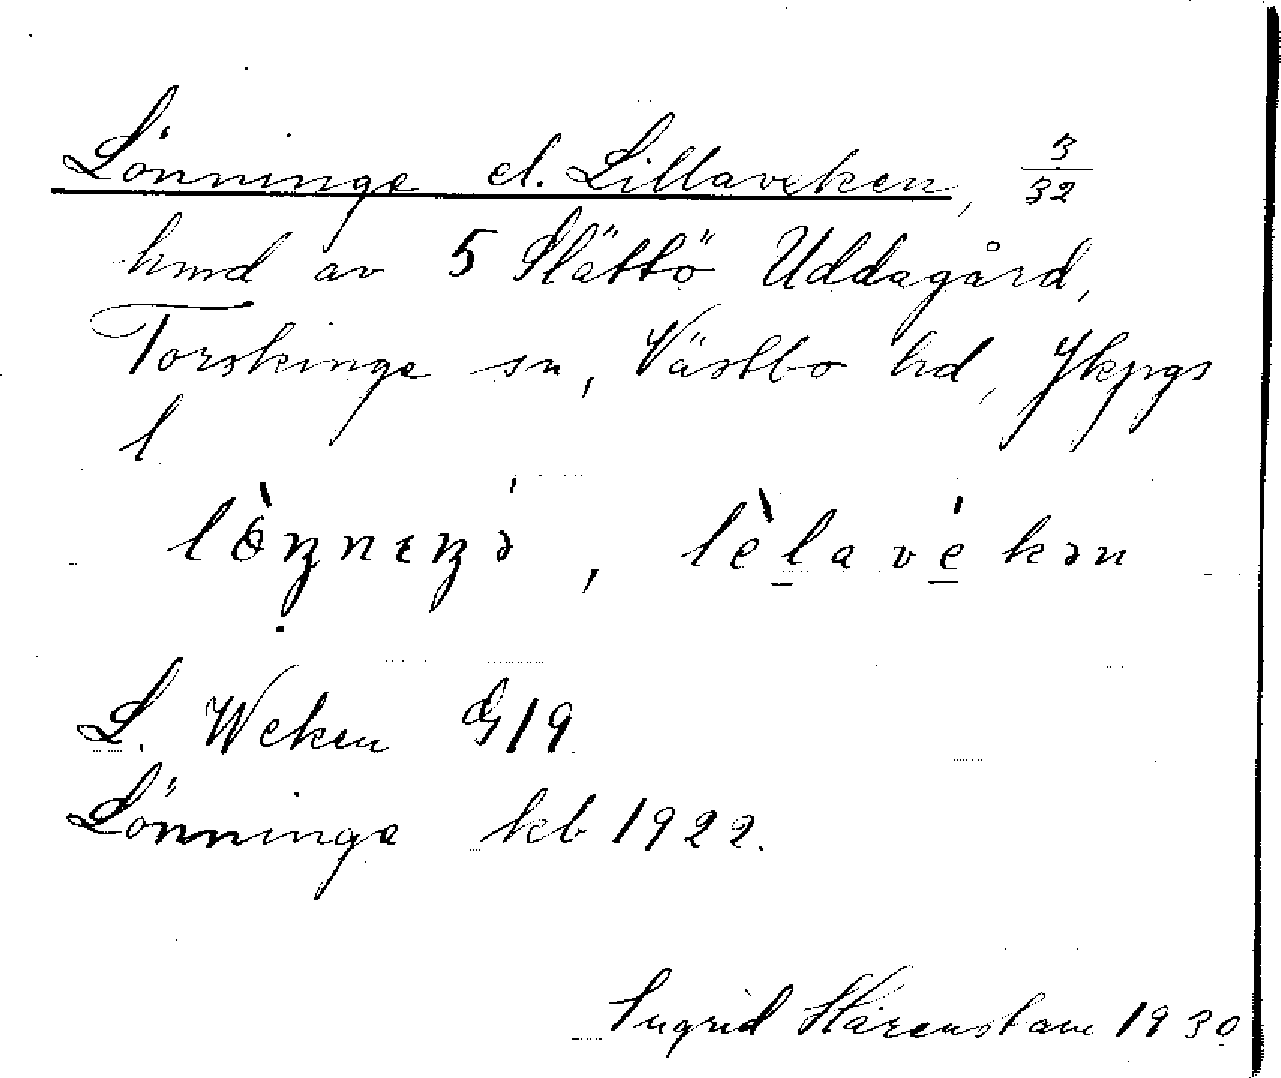 Lönninge el. Lillaveken, 3/32
hmd av 5 Slättö Uddagård,
Torskinge sn, Västbo hd, Jkpgs
l
L. Weken G 19
Lönninge kb 1922.
Ingrid Härenstam 1930